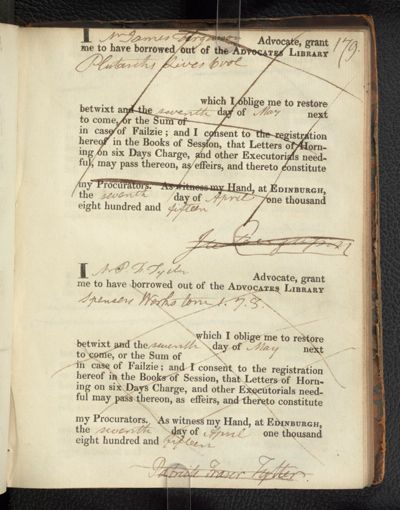 179.
I Mr James Ferguson Advocate, grant
me to have borrowed out of the ADVOCATES LIBRARY
Plutarchs Lives 6 vol
which I oblige me to restore
betwixt and the seventh day of May next
to come, or the Sum of
in case of Failzie; and I consent to the registration
hereof in the Books of Session, that Letters of Horn-
ing on six Days Charge, and other Executorials need-
ful, may pass thereon, as effeirs, and thereto constitute
my Procurators. As witness my Hand, at EDINBURGH,
the seventh day of April one thousand
eight hundred and fifteen
Ja Ferguson
I Mr P. F. Tytler Advocate, grant
me to have borrowed out of the ADVOCATES LIBRARY
Spensers Works tom 1. 7. 8.
which I oblige me to restore
betwixt and the seventh day of May next
to come, or the Sum of
in case of Failzie; and I consent to the registration
hereof in the Books of Session, that Letters of Horn-
ing on six Days Charge, and other Executorials need-
ful may pass thereon, as effeirs, and thereto constitute
my Procurators. As witness my Hand, at EDINBURGH,
the seventh day of April one thousand
eight hundred and fifteen
Patrick Fraser Tytler.